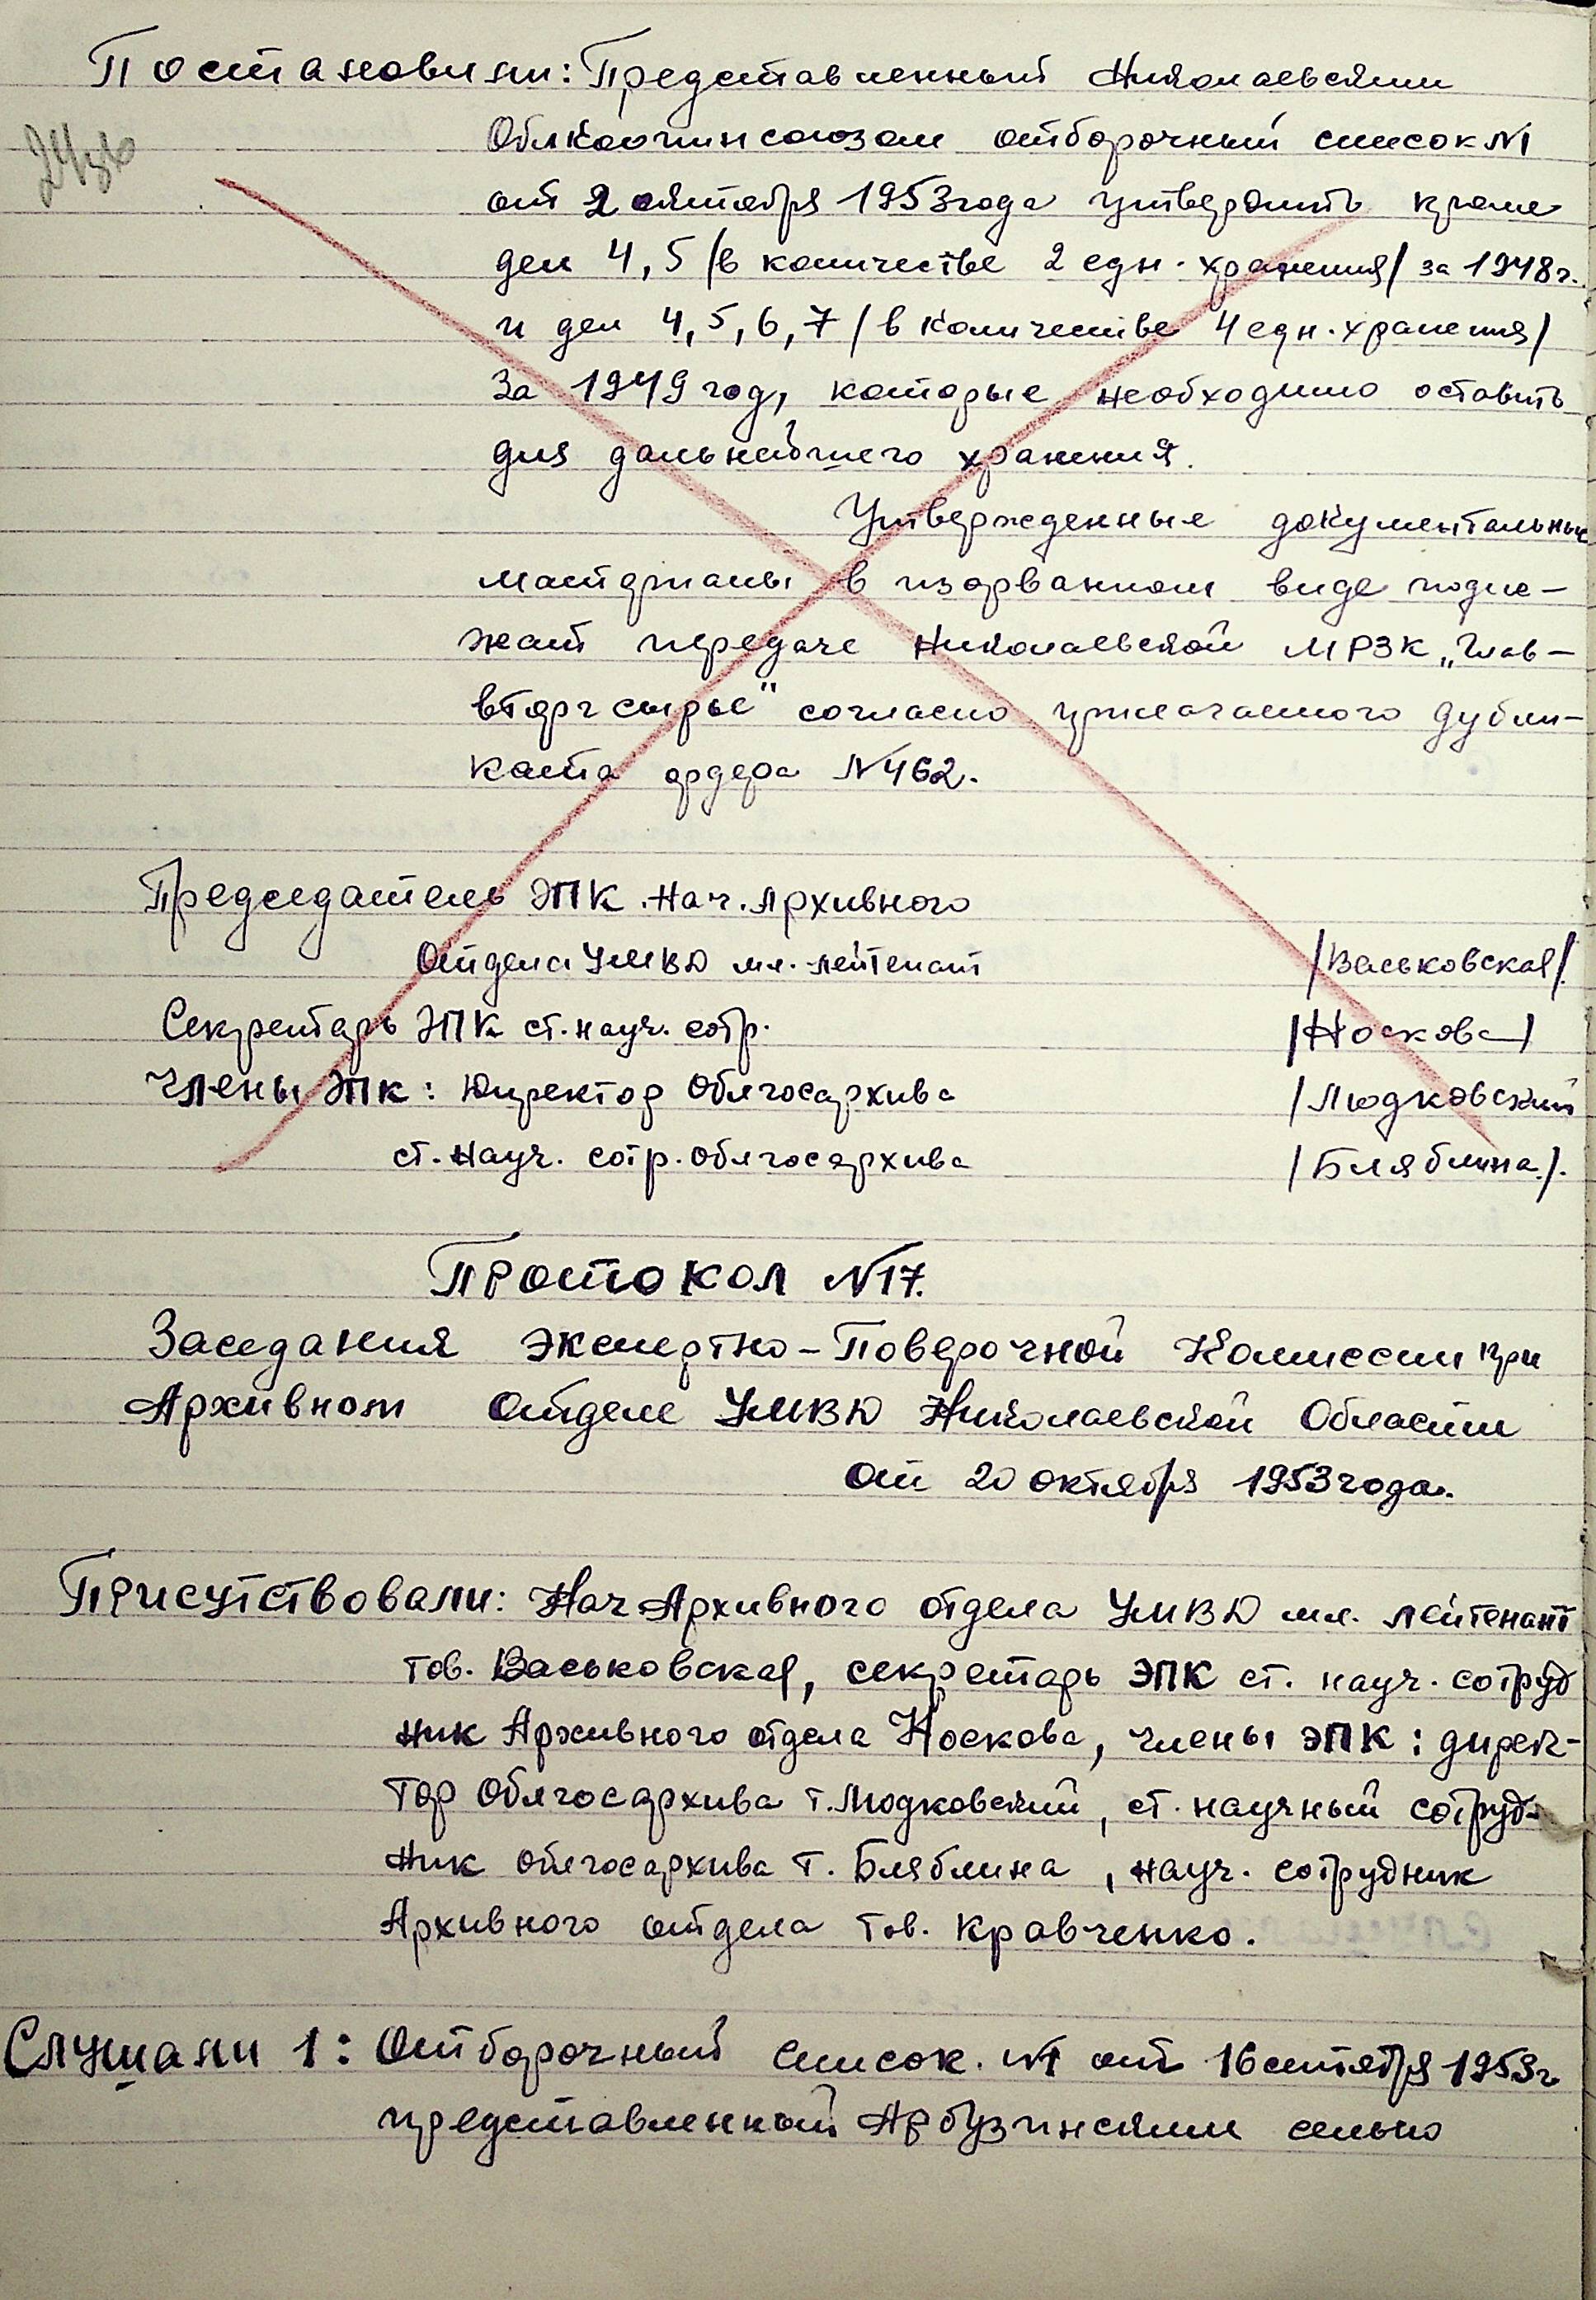 Постановили: Представленный Николаевским
Облкоопинсоюзом отборочный список №1
от 2 октября 1953 года утвердить кроме
дел 4, 5 /в количестве 2 едн. хранения/ за 1948 г.
и дел 4, 5, 6, 7 /в количестве 4 едн. хранения/
за 1949 год, которые необходимо оставить
для дальнейшего хранения.
Утвержденные документальные
материалы в изорванном виде подле-
жат передаче Николаевской МРЗК „Глав-
вторгсырье" согласно прилагаемого дубли-
ката ордера №462.
Председатель ЭПК. Нач. Архивного
Отдела УМВД мл. лейтенант /Васьковская/.
Секретарь ЭПК ст. науч. сотр. /Носкова/
Члены ЭПК: Директор Облгосархива /Людковский
ст. науч. сотр. Облгосархива /Бляблина/.
Протокол №17.
Заседания Экспертно-Поверочной Комиссии при
Архивном Отделе УМВД Николаевской Области
от 20 октября 1953 года.
Присутствовали: Нач Архивного отдела УМВД мл. лейтенант
тов. Васьковская, секретарь ЭПК ст. науч. сотруд
ник Архивного отдела Носкова, члены ЭПК: дирек-
тор Облгосархива т. Людковский, ст. научный сотруд-
ник облгосархива т. Бляблина, науч. сотрудник
Архивного отдела тов. Кравченко.
Слушали 1: Отборочный список. №1 от 16 сентября 1953 г
представленный Арбузинским сельпо